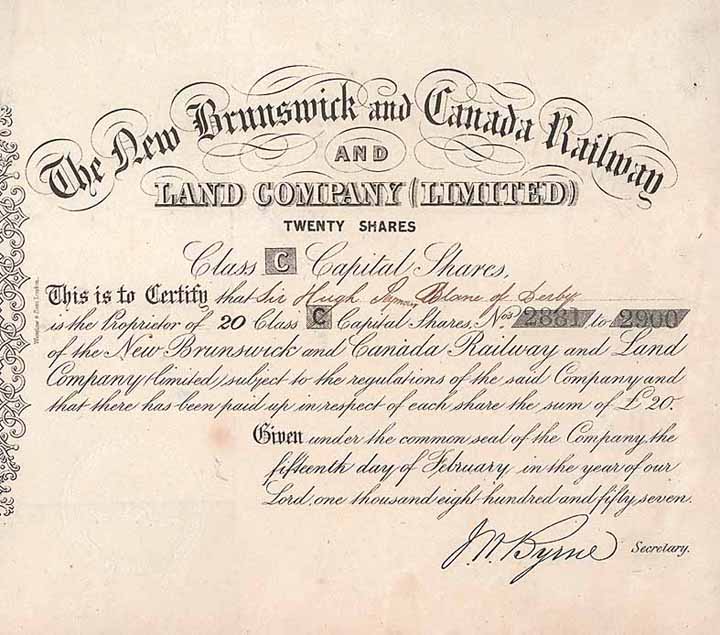 The New Brunswick and Canada Railway
AND
LAND COMPANY (LIMITED)
TWENTY SHARES
Class C Capital Shares,
This is to Certify that Sir Hugh Blane of Derby
is the Proprietor of 20 Class C Capital Shares, Nos 2881 to 2900
of the New Brunswick and Canada Railway and Land
Company (limited) subject to the regulations of the said Company and
that there has been paid up in respect of each share the sum of £20.
Given under the common seal of the Company, the
fifteenth day of February in the year of our
Lord, one thousand eight hundred and fifty seven.
J W Byrne Secretary.